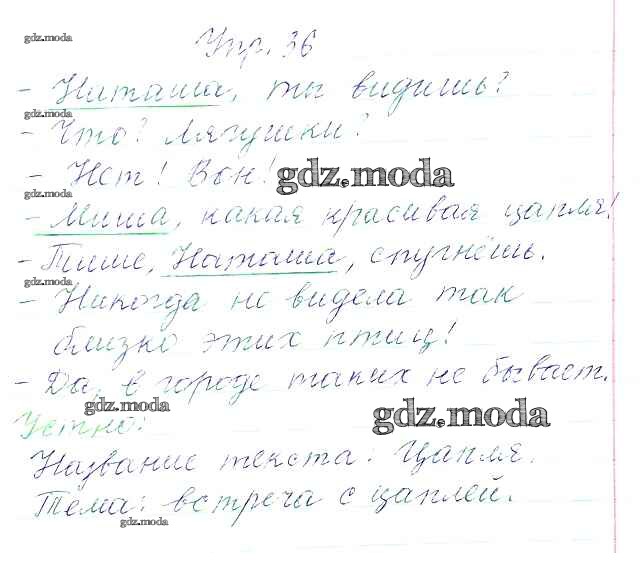 gdz.moda
Упр. 36
- Наташа, ты видишь?
gdz.moda
- Что? Лягушки?
- Нет! Вон!
gdz.moda
gdz.moda
- Миша, какая красивая цапля!
- Тише, Наташа, спугнёшь.
gdz.moda
- Никогда не видела так
близко этих птиц!
- Да, в городе таких не бывает.
gdz.moda
gdz.moda
Устно:
Название текста: Цапля.
Тема: встреча с цаплей.
gdz.moda